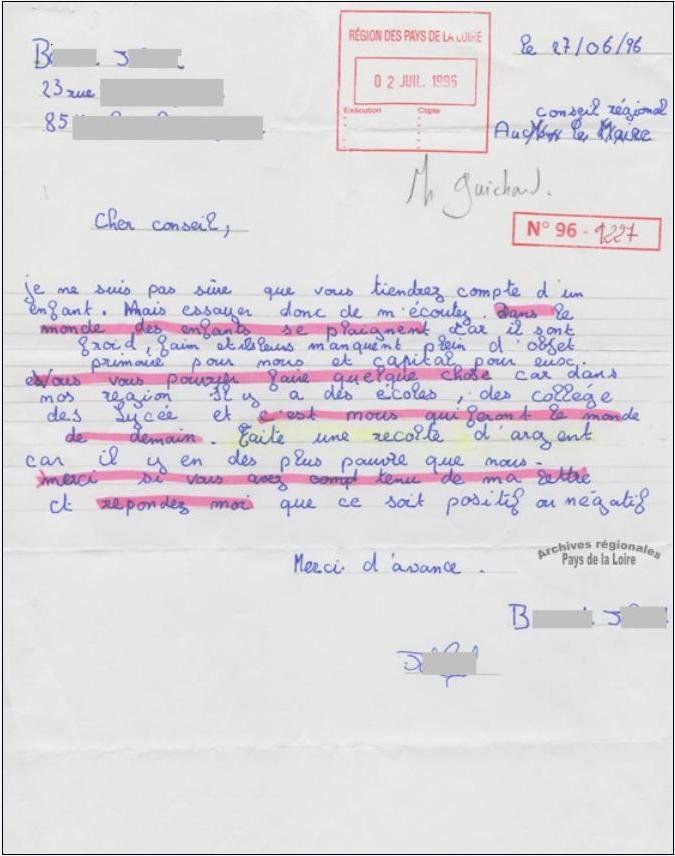 B J
23 rue
85
RÉGION DES PAYS DE LA LOIRE
02 JUIL. 1996
Exécution Copie
le 27/06/96
conseil régional
Au
Mr Guichard.
N° 96 - 1227
Cher conseil,
je ne suis pas sûre que vous tiendrez compte d'un
enfant. Mais essayer donc de m'écoutez. Dans le
monde des enfants se plaignent car il sont
froid, faim et ils leurs manquent plein d'objet
primaire pour nous et capital pour eux.
Vous vous pourrier faire quelque chose car dans
nos region il y a des écoles, des collège
des Lycée et c'est nous qui feront le monde
de demain. Faite une recolte d'argent
car il y en des plus pauvre que nous.
merci si vous avez compt tenu de ma lettre
et repondez moi que ce soit positif ou négatif
Merci d'avance.
Archives régionales
Pays de la Loire
B J